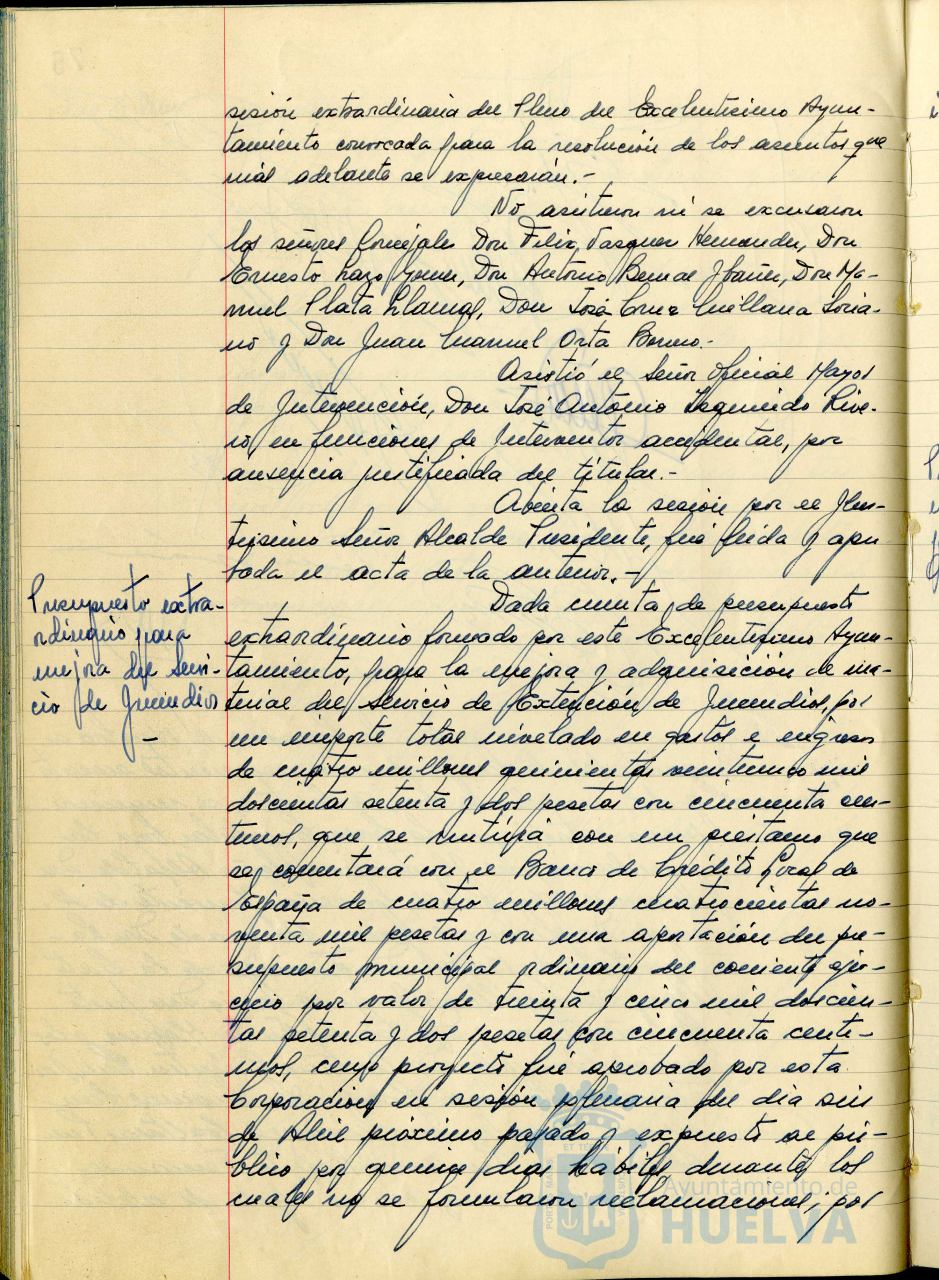 sesión extraordinaria del Pleno del Excelentísimo Ayun-
tamiento convocada para la resolución de los asuntos que
más adelante se expresarán.-
No asistieron ni se excusaron
los señores Concejales Don Felix Vasquez Hernandez, Don
Ernesto Lazo Gomez, Don Antonio Bernal Ibañez, Don Ma-
nuel Plata Llamas, Don José Cruz Orellana Soria-
no y Don Juan Manuel Orta Borrero.-
Asistió el Señor Oficial Mayor
de Intervención, Don José Antonio Izquierdo Rive-
ro, en funciones de Interventor accidental, por
ausencia justificada del titular.-
Abierta la sesión por el Ilus-
trísimo Señor Alcalde Presidente, fué leida y apro
bada el acta de la anterior.-
Presupuesto extra-
ordinario para
mejora del Servi-
cio de Incendios
-
Dada cuenta de presupuesto
extraordinario formado por este Excelentísimo Ayun-
tamiento, para la mejora y adquisición de ma-
terial del Servicio de Extinción de Incendios, por
un importe total nivelado en gastos e ingresos
de cuatro millones quinientas veinticinco mil
doscientas setenta y dos pesetas con cincuenta cen-
timos, que se nutrirá con un préstamo que
se concertará con el Banco de Crédito Local de
España de cuatro millones cuatrocientas no-
venta mil pesetas y con una aportación del pre-
supuesto municipal ordinario del corriente ejer-
cicio por valor de treinta y cinco mil doscien-
tas setenta y dos pesetas con cincuenta centi-
mos, cuyo proyecto fué aprobado por esta
Corporación en sesión plenaria del día seis
de Abril próximo pasado y expuesto al pú-
blico por quince días hábiles durante los
cuales no se formularon reclamaciones, por
Ayuntamiento de
HUELVA